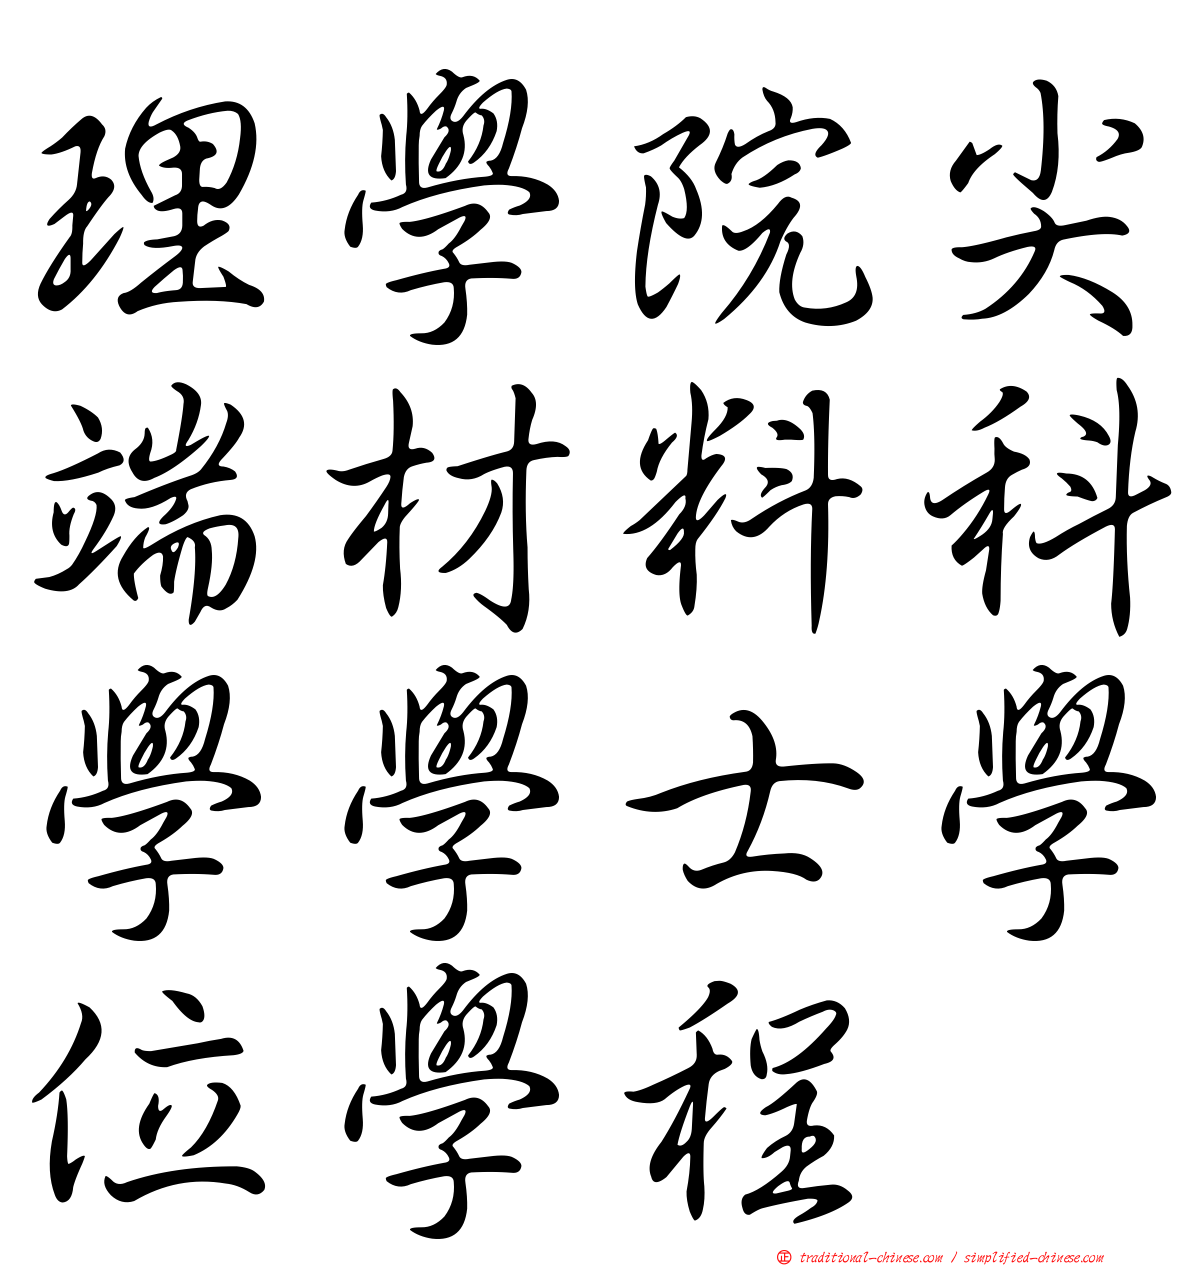 理學院尖
端材料科
學學士學
位學程
正 traditional-chinese.com / simplified-chinese.com